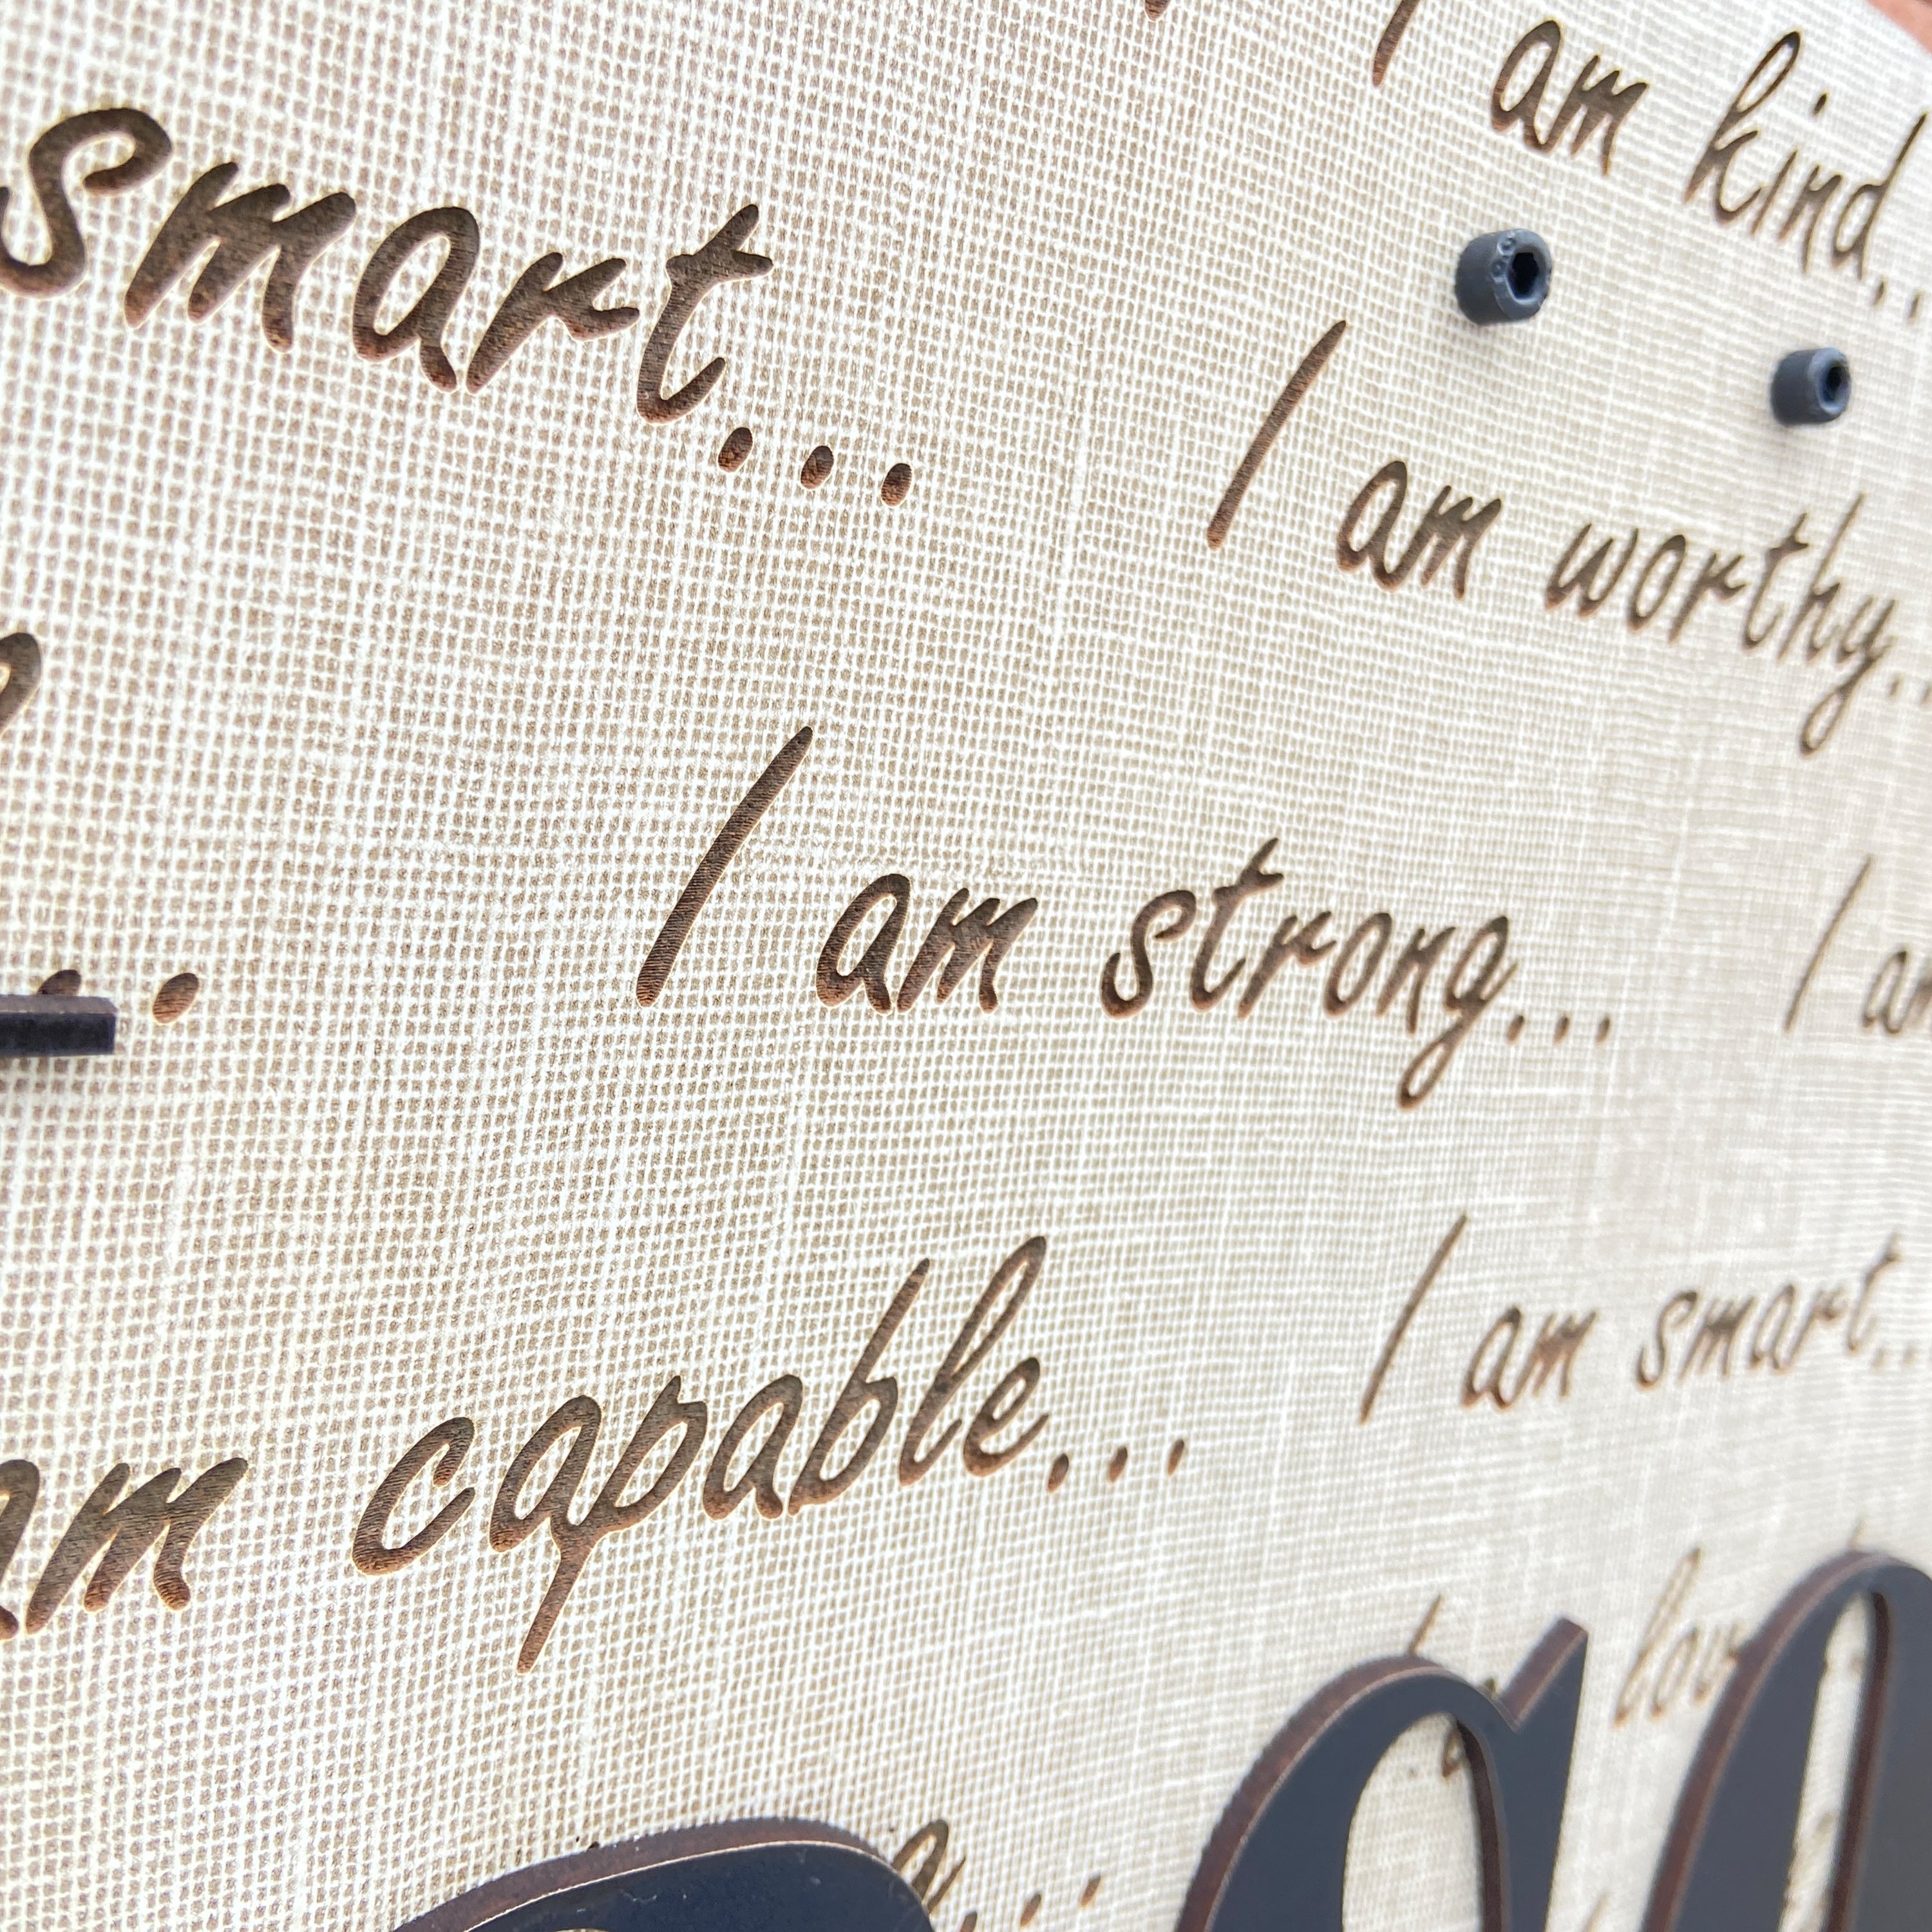 I am kind..
smart...
I am worthy.
I am strong...
I am
am capable...
I am smart..